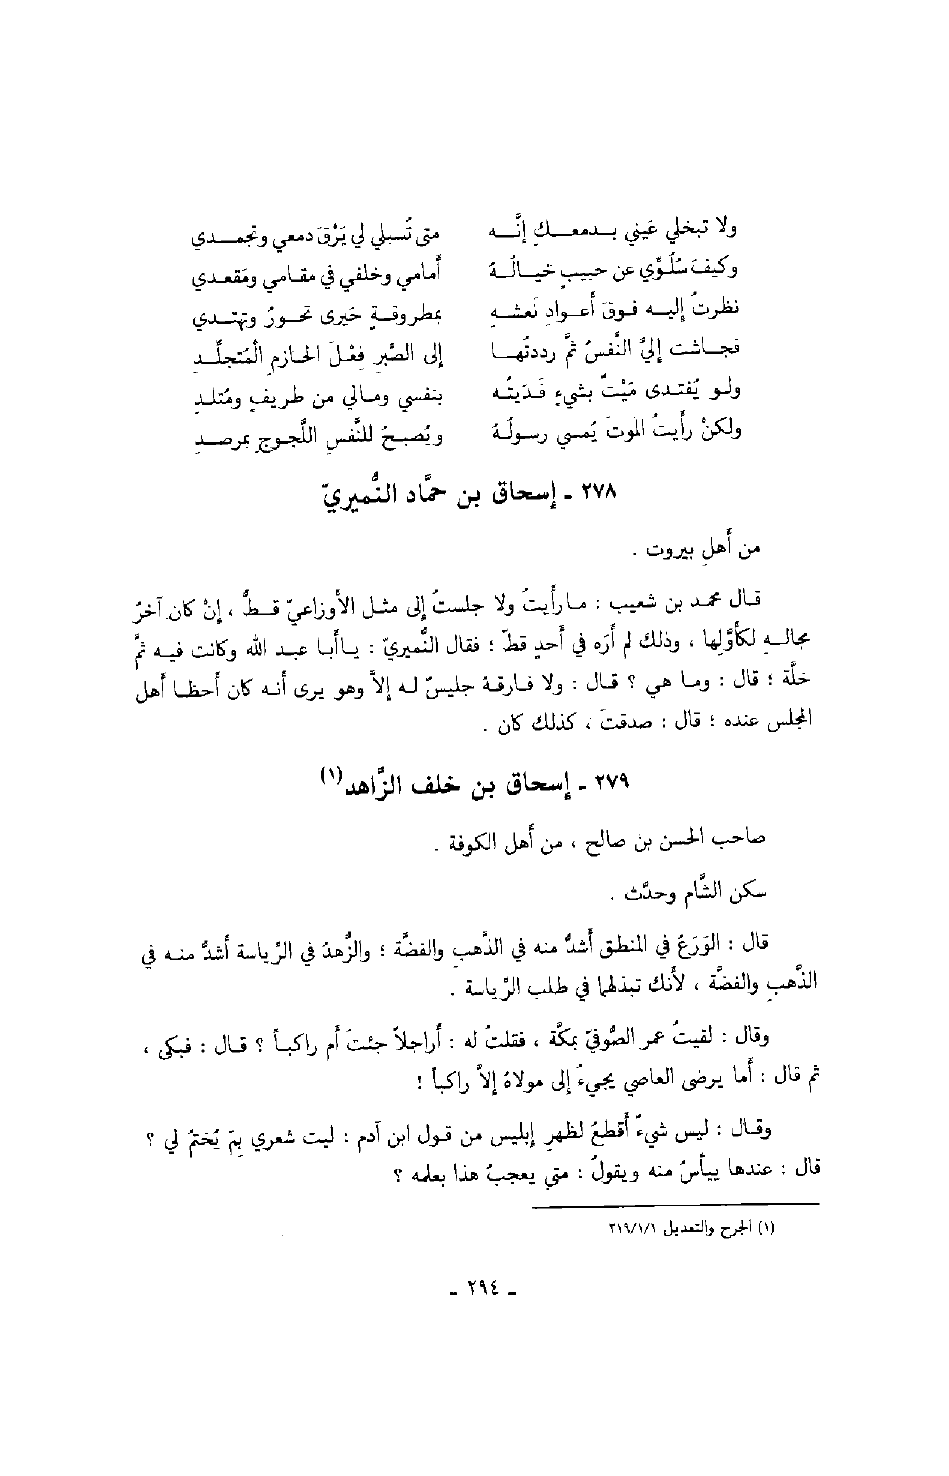 ولا تبخلي عَيني بـدمعـــكِ إنَّــه متى تُسبلي لي يَرْقَ دمعي وتجمــدي
وكيفَ سُلوِّي عن حبيبٍ خيـالُــهُ أمامي وخلفي في مقـامي ومَقعـدي
نظرتُ إليـه فـوقَ أعـوادِ نَعشِـهِ بمطروقـةٍ حَيرى تحـورُ وتهتـدي
فجـاشت إليَّ النَّفسُ ثمَّ رددتُهـا إلى الصَّبرِ فِعْلَ الحازمِ الُمتجلِّـدِ
ولـو يُفتدى مَيْتٌ بشيءٍ فَدَيتُه بنفسي ومالي من طريفٍ ومُتلدِ
ولكنْ رأيتُ الموتَ يُمسي رسولُهُ ويُصبحُ للنَّفسِ اللَّجوجِ بمرصدِ
٢٧٨ ـ إسحاق بن حمَّاد النُّميريّ
من أهلِ بيروت .
قـال محمد بن شعيب : مـارأيتُ ولا جلستُ إلى مثـل الأوزاعيّ قـطُّ ، إنْ كان آخرُ
مجالسِهِ لكأوَّلِها ، وذلك لم أرَه في أحدٍ قطّ ؛ فقال النُّميريّ : يـاأبـا عبـد الله وكانت فيـه ثمَّ
خلَّة ؛ قال : ومـا هي ؟ قـال : ولا فـارقَـهُ جليسٌ لـه إلاّ وهو يرى أنـه كان أحظـا أهل
المجلس عنده ؛ قال : صدقتَ ، كذلك كان .
٢٧٩ ـ إسحاق بن خلف الزَّاهد(١)
صاحب الحسن بن صالح ، من أهل الكوفة .
سكن الشَّام وحدَّث .
قال : الوَرَعُ في المنطق أشدُّ منه في الذَّهب والفضَّة ؛ والزُّهدُ في الرِّياسة أشدُّ منـه في
الذَّهبِ والفضَّة ، لأنك تبذلهما في طلب الرِّياسة .
وقال : لقيتُ عمر الصُّوفيّ بمكَّة ، فقلتُ له : أراجلاً جئتَ أم راكبـاً ؟ قـال : فبكى ،
ثم قال : أما يرضى العاصي يجيءُ إلى مولاهُ إلاَّ راكباً !
وقـال : ليس شيءٌ أقطعُ لظهرِ إبليس من قـول ابن آدم : ليت شعري بِمَ يُختمُ لي ؟
قال : عندها ييأسُ منه ويقولُ : متى يعجبُ هذا بعلمه ؟
(١) الجرح والتعديل ٢١٩/١/١
ـ ٢٩٤ ـ